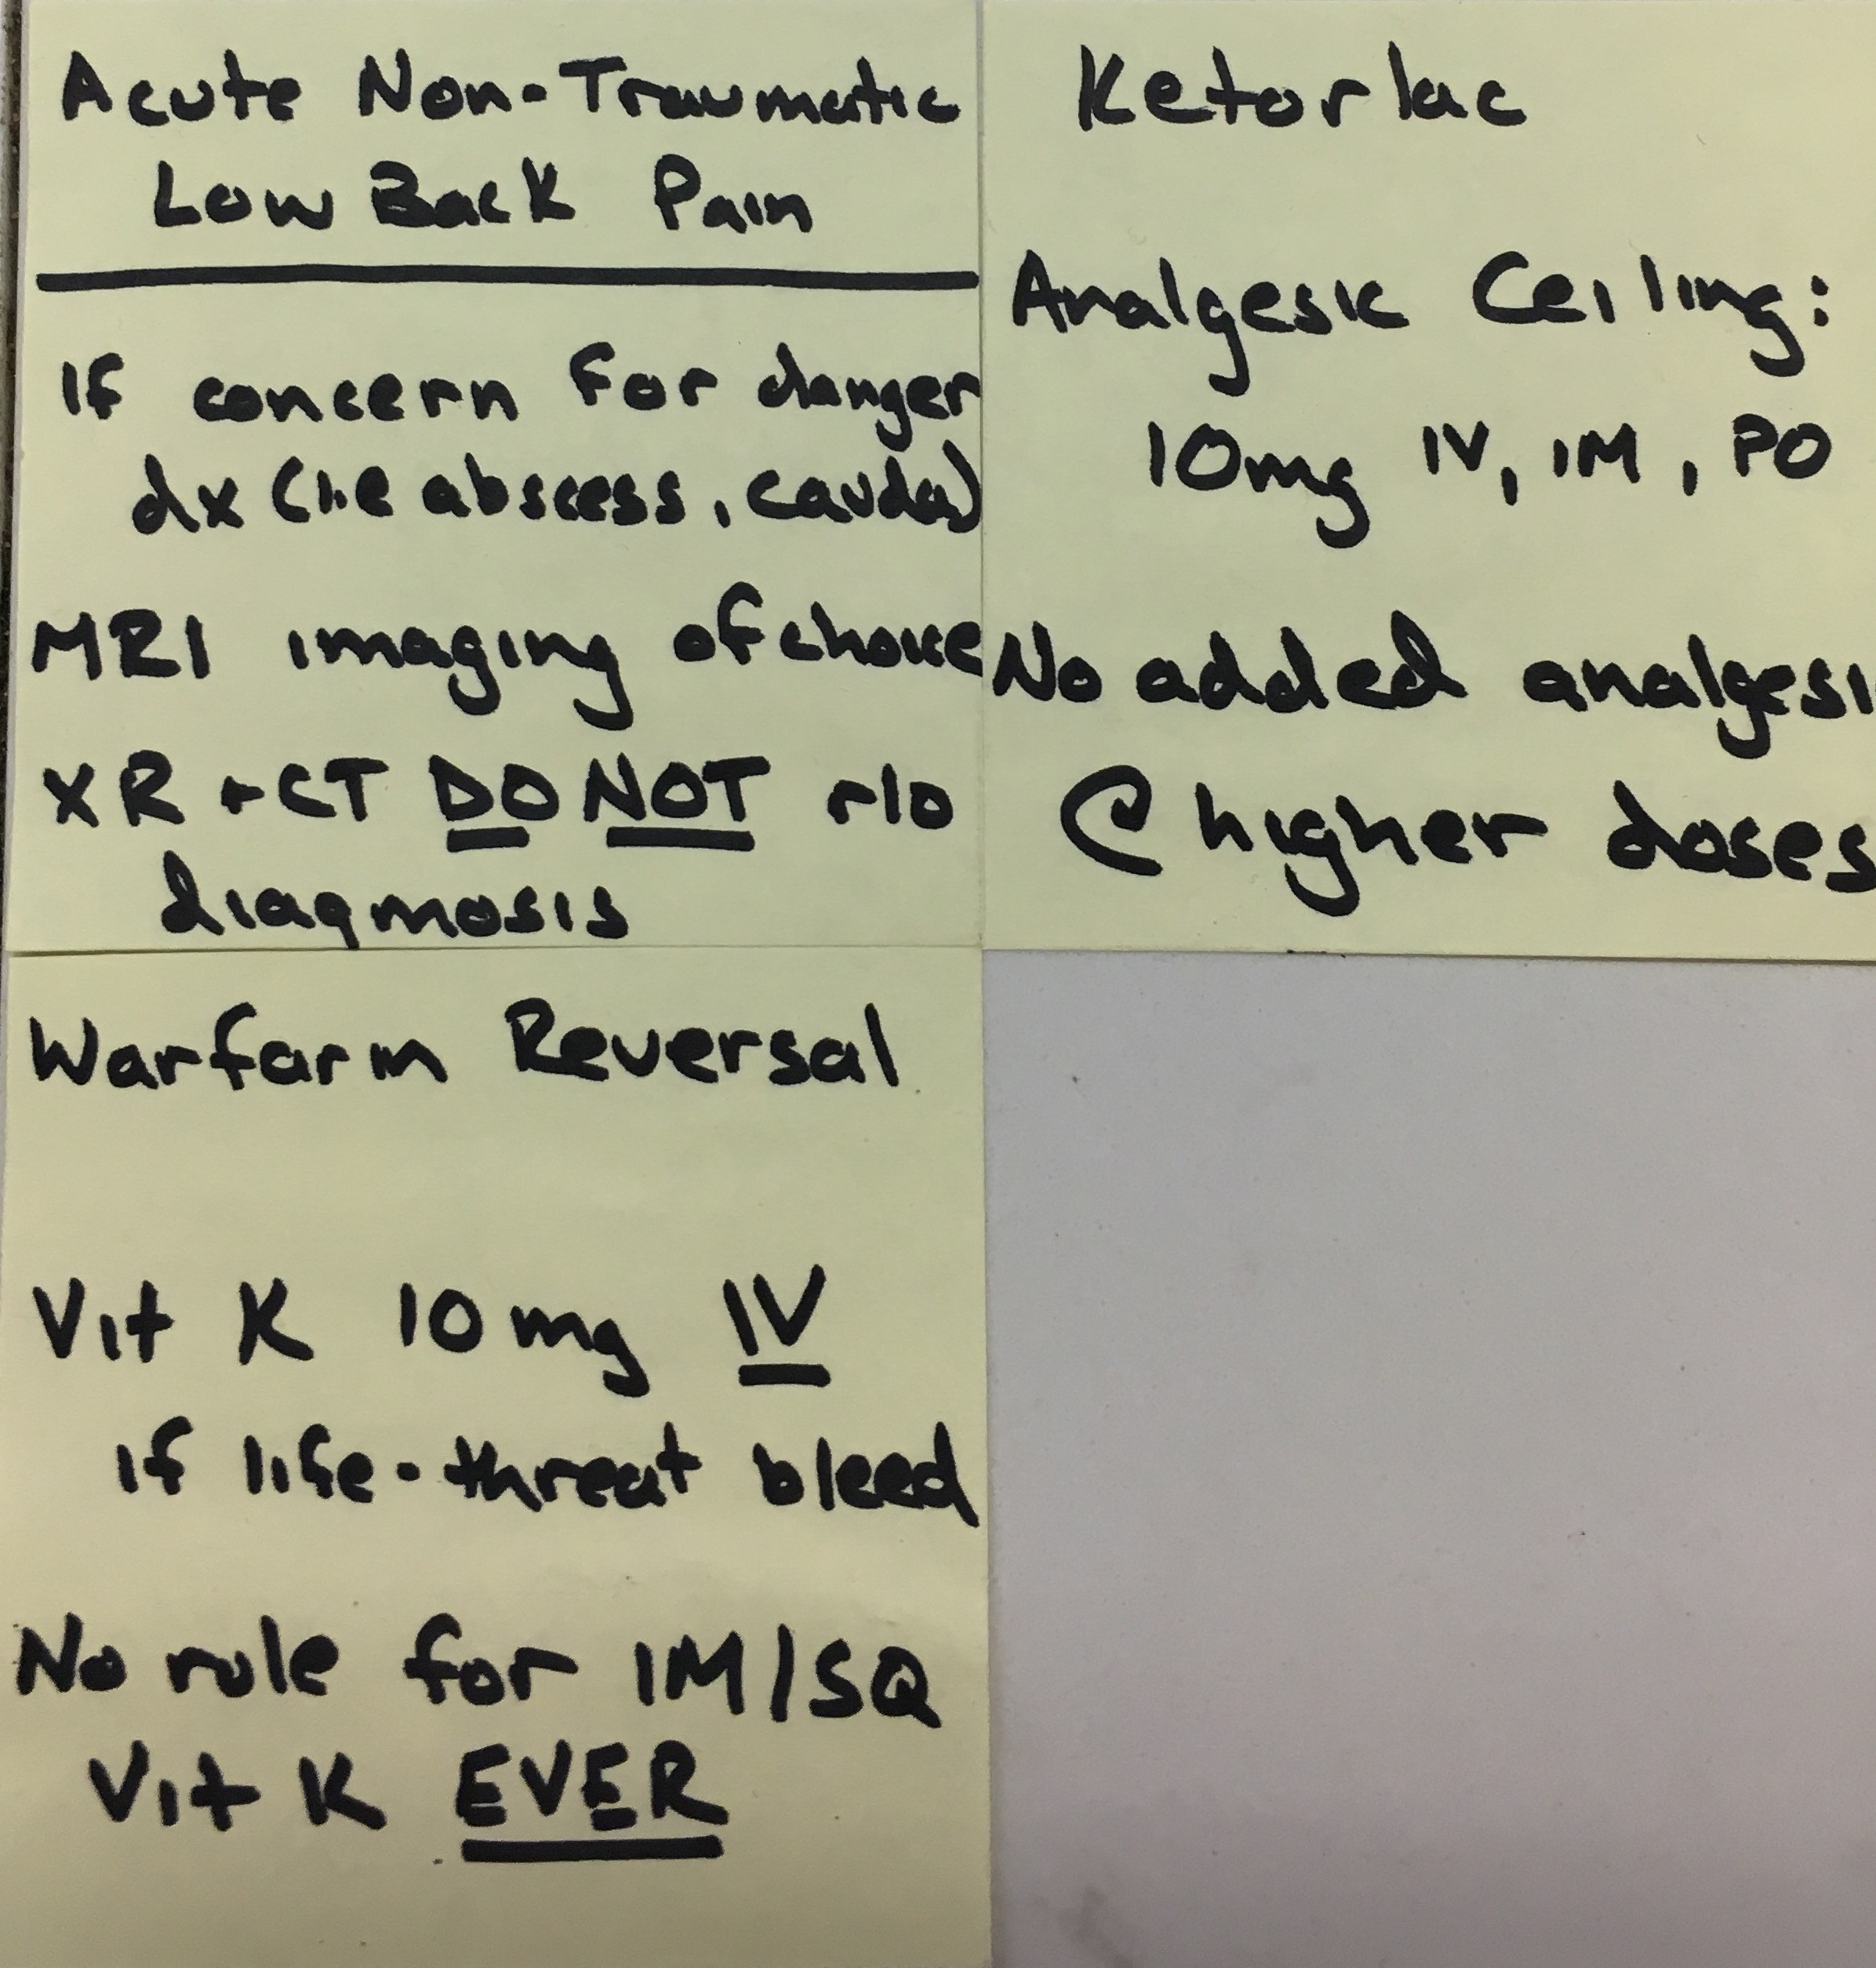 Acute Non-Traumatic
Low Back Pain
If concern for danger
dx (i.e abscess, cauda)
MRI imaging of choice
XR + CT DO NOT r/o
diagnosis
Ketorlac
Analgesic Ceiling:
10mg IV, IM, PO
No added analgesi
@ higher doses
Warfarin Reversal
Vit K 10mg IV
If life-threat bleed
No role for IM/SQ
Vit K EVER